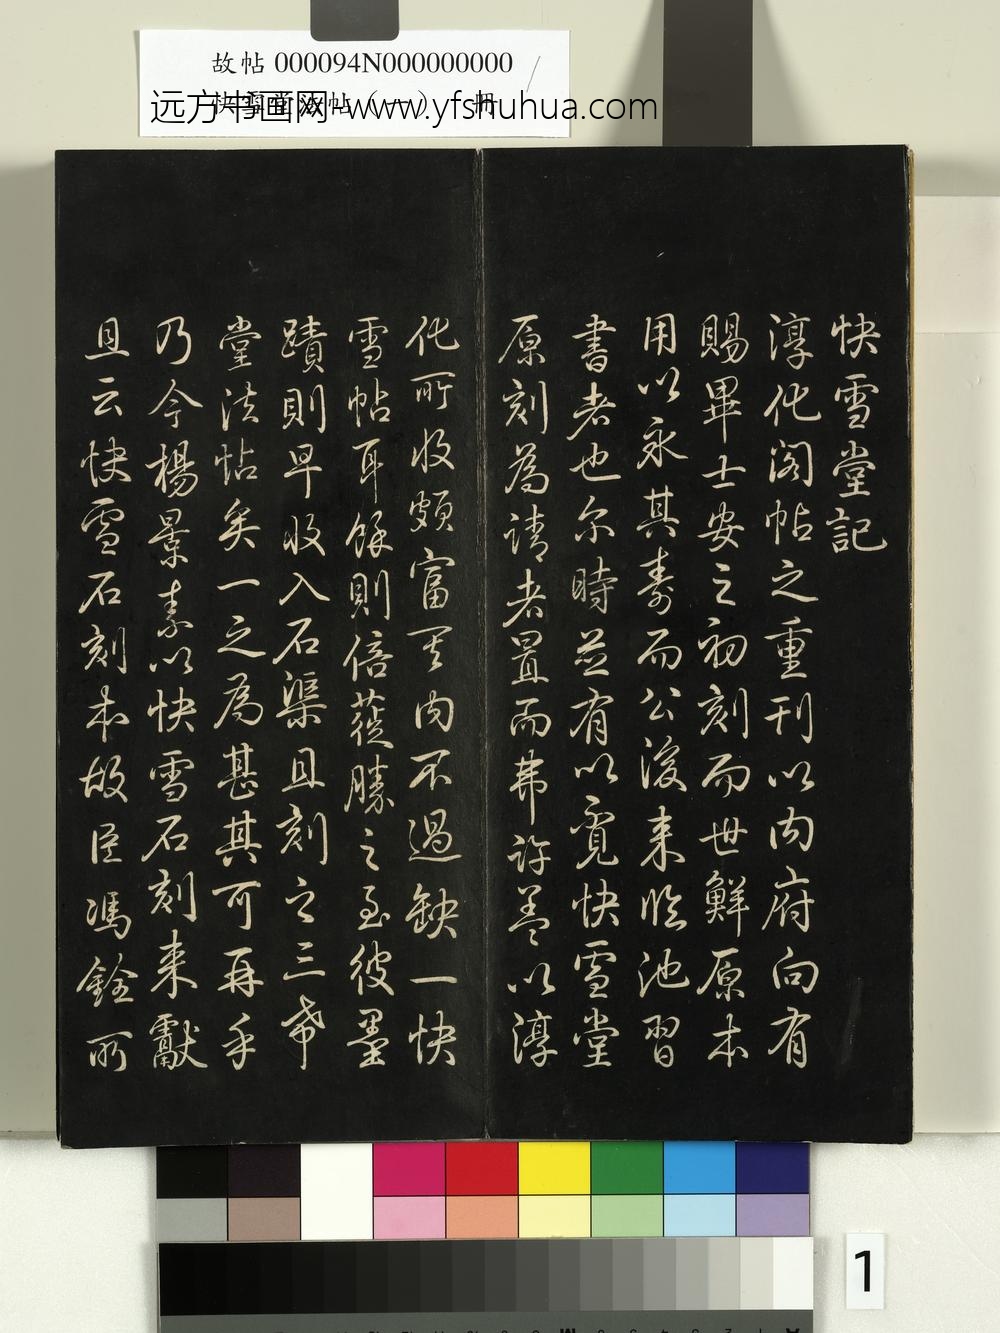 故帖 000094N000000000
快雪堂法帖（一） 冊
远方书画网-www.yfshuhua.com
快雪堂記
淳化閣帖之重刊以内府向有
賜畢士安之初刻而世鮮原本
用以永其壽而公後来臨池習
書者也尔時並有以覓快雪堂
原刻為請者置而弗許蓋以淳
化所收頗富其内不過缺一快
雪帖耳餘則倍蓰勝之至彼墨
蹟則早收入石渠且刻之三希
堂法帖矣一之為甚其可再乎
乃今楊景素以快雪石刻来獻
且云快雪石刻本故臣馮銓所
1